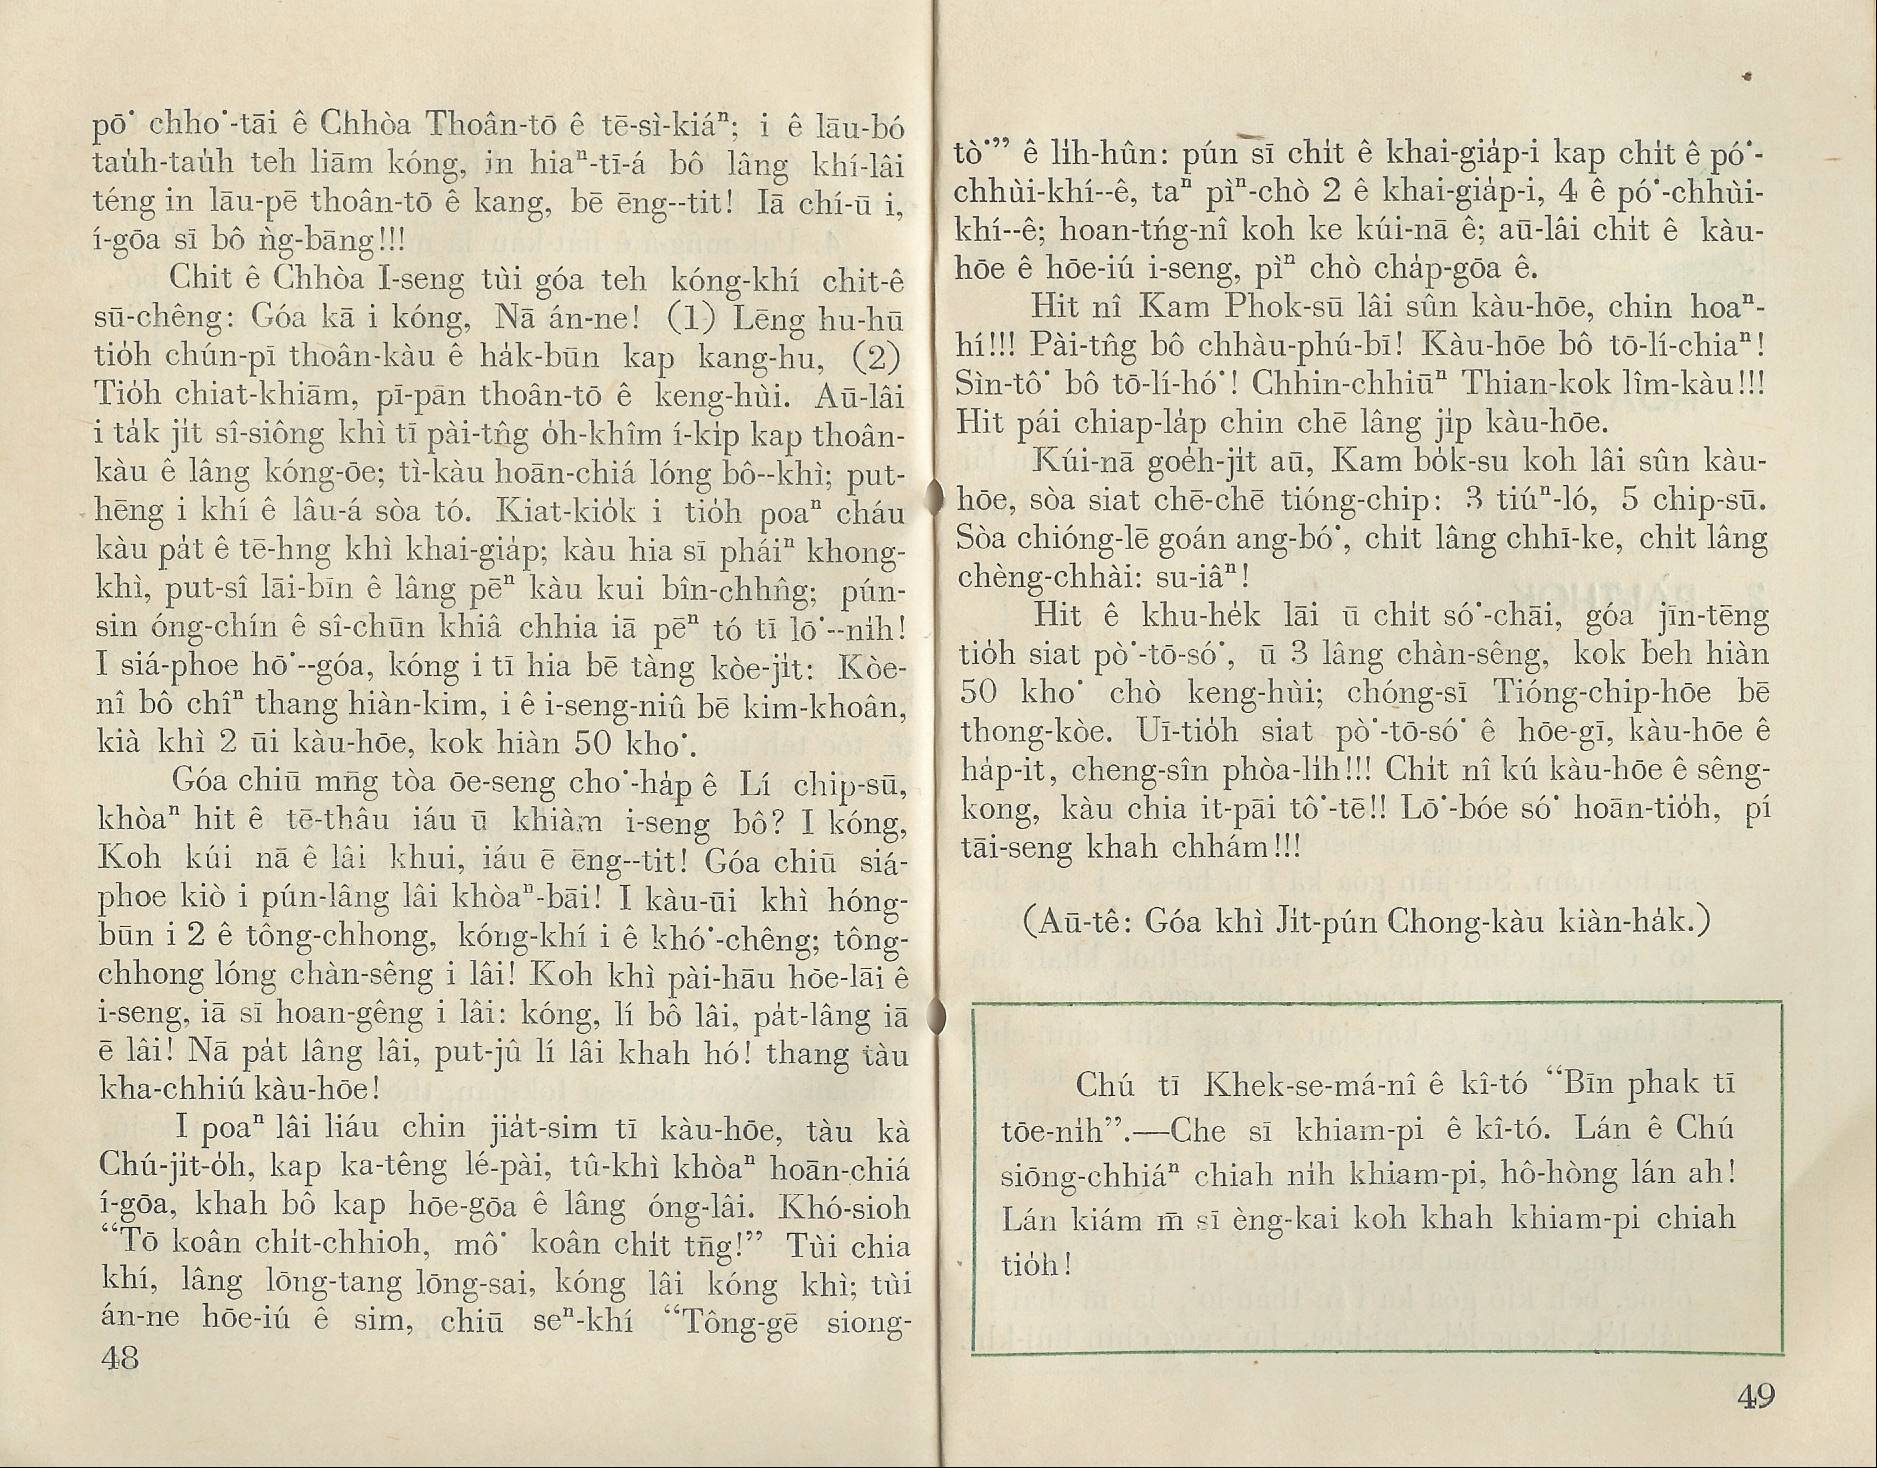 pō͘ chho͘-tāi ê Chhòa Thoân-tō ê tē-sì-kiáⁿ; i ê lāu-bó
ta̍uh-ta̍uh teh liām kóng, in hiaⁿ-tī-á bô lâng khí-lâi
téng in lāu-pē thoân-tō ê kang, bē ēng--tit! Iā chí-ū i,
í-gōa sī bô ǹg-bāng!!!
Chit ê Chhòa I-seng tùi góa teh kóng-khí chit-ê
sū-chêng: Góa kā i kóng, Nā án-ne! (1) Lēng hu-hū
tio̍h chún-pī thoân-kàu ê ha̍k-būn kap kang-hu, (2)
Tio̍h chiat-khiām, pī-pān thoân-tō ê keng-hùi. Aū-lâi
i ta̍k ji̍t sî-siông khì tī pài-tn̂g o̍h-khîm í-ki̍p kap thoân-
kàu ê lâng kóng-ōe; tì-kàu hoān-chiá lóng bô--khì; put-
hēng i khí ê lâu-á sòa tó. Kiat-kio̍k i tio̍h poaⁿ cháu
kàu pa̍t ê tē-hng khì khai-gia̍p; kàu hia sī pháiⁿ khong-
khì, put-sî lāi-bīn ê lâng pēⁿ kàu kui bîn-chhn̂g; pún-
sin óng-chín ê sî-chūn khiâ chhia iā pēⁿ tó tī lō͘--ni̍h!
I siá-phoe hō͘--góa, kóng i tī hia bē tàng kòe-ji̍t: Kòe-
nî bô chîⁿ thang hiàn-kim, i ê i-seng-niû bē kim-khoân,
kià khì 2 ūi kàu-hōe, kok hiàn 50 kho͘.
Góa chiū mn̄g tòa ōe-seng cho͘-ha̍p ê Lí chip-sū,
khòaⁿ hit ê tē-thâu iáu ū khiàm i-seng bô? I kóng,
Koh kúi nā ê lâi khui, iáu ē ēng--tit! Góa chiū siá-
phoe kiò i pún-lâng lâi khòaⁿ-bāi! I kàu-ūi khì hóng-
būn i 2 ê tông-chhong, kóng-khí i ê khó͘-chêng; tông-
chhong lóng chàn-sêng i lâi! Koh khì pài-hāu hōe-lāi ê
i-seng, iā sī hoan-gêng i lâi: kóng, lí bô lâi, pa̍t-lâng iā
ē lâi! Nā pa̍t lâng lâi, put-jû lí lâi khah hó! thang tàu
kha-chhiú kàu-hōe!
I poaⁿ lâi liáu chin jia̍t-sim tī kàu-hōe, tàu kà
Chú-ji̍t-o̍h, kap ka-têng lé-pài, tû-khì khòaⁿ hoān-chiá
í-gōa, khah bô kap hōe-gōa ê lâng óng-lâi. Khó-sioh
“Tō koân chi̍t-chhioh, mô͘ koân chi̍t tn̄g!” Tùi chia
khí, lâng lōng-tang lōng-sai, kóng lâi kóng khì; tùi
án-ne hōe-iú ê sim, chiū seⁿ-khí “Tông-gē siong-
48
tò͘” ê li̍h-hûn: pún sī chi̍t ê khai-gia̍p-i kap chi̍t ê pó͘-
chhùi-khí--ê, taⁿ pìⁿ-chò 2 ê khai-gia̍p-i, 4 ê pó͘-chhùi-
khí--ê; hoan-tńg-nî koh ke kúi-nā ê; aū-lâi chi̍t ê kàu-
hōe ê hōe-iú i-seng, pìⁿ chò cha̍p-gōa ê.
Hit nî Kam Phok-sū lâi sûn kàu-hōe, chin hoaⁿ-
hí!!! Pài-tn̂g bô chhàu-phú-bī! Kàu-hōe bô tō-lí-chiaⁿ!
Sìn-tô͘ bô tō-lí-hó͘! Chhin-chhiūⁿ Thian-kok lîm-kàu!!!
Hit pái chiap-la̍p chin chē lâng ji̍p kàu-hōe.
Kúi-nā goe̍h-ji̍t aū, Kam bo̍k-su koh lâi sûn kàu-
hōe, sòa siat chē-chē tióng-chip: 3 tiúⁿ-ló, 5 chip-sū.
Sòa chióng-lē goán ang-bó͘, chi̍t lâng chhī-ke, chi̍t lâng
chèng-chhài: su-iâⁿ!
Hit ê khu-he̍k lāi ū chi̍t só͘-chāi, góa jīn-tēng
tio̍h siat pò͘-tō-só͘, ū 3 lâng chàn-sêng, kok beh hiàn
50 kho͘ chò keng-hùi; chóng-sī Tióng-chip-hōe bē
thong-kòe. Uī-tio̍h siat pò͘-tō-só͘ ê hōe-gī, kàu-hōe ê
ha̍p-it, cheng-sîn phòa-li̍h!!! Chi̍t nî kú kàu-hōe ê sêng-
kong, kàu chia it-pāi tô͘-tē!! Lō͘-bóe só͘ hoān-tio̍h, pí
tāi-seng khah chhám!!!
(Aū-tê: Góa khì Ji̍t-pún Chong-kàu kiàn-ha̍k.)
Chú tī Khek-se-má-nî ê kî-tó “Bīn phak tī
tōe-ni̍h”.—Che sī khiam-pi ê kî-tó. Lán ê Chú
siōng-chhiáⁿ chiah ni̍h khiam-pi, hô-hòng lán ah!
Lán kiám m̄ sī èng-kai koh khah khiam-pi chiah
tio̍h!
49